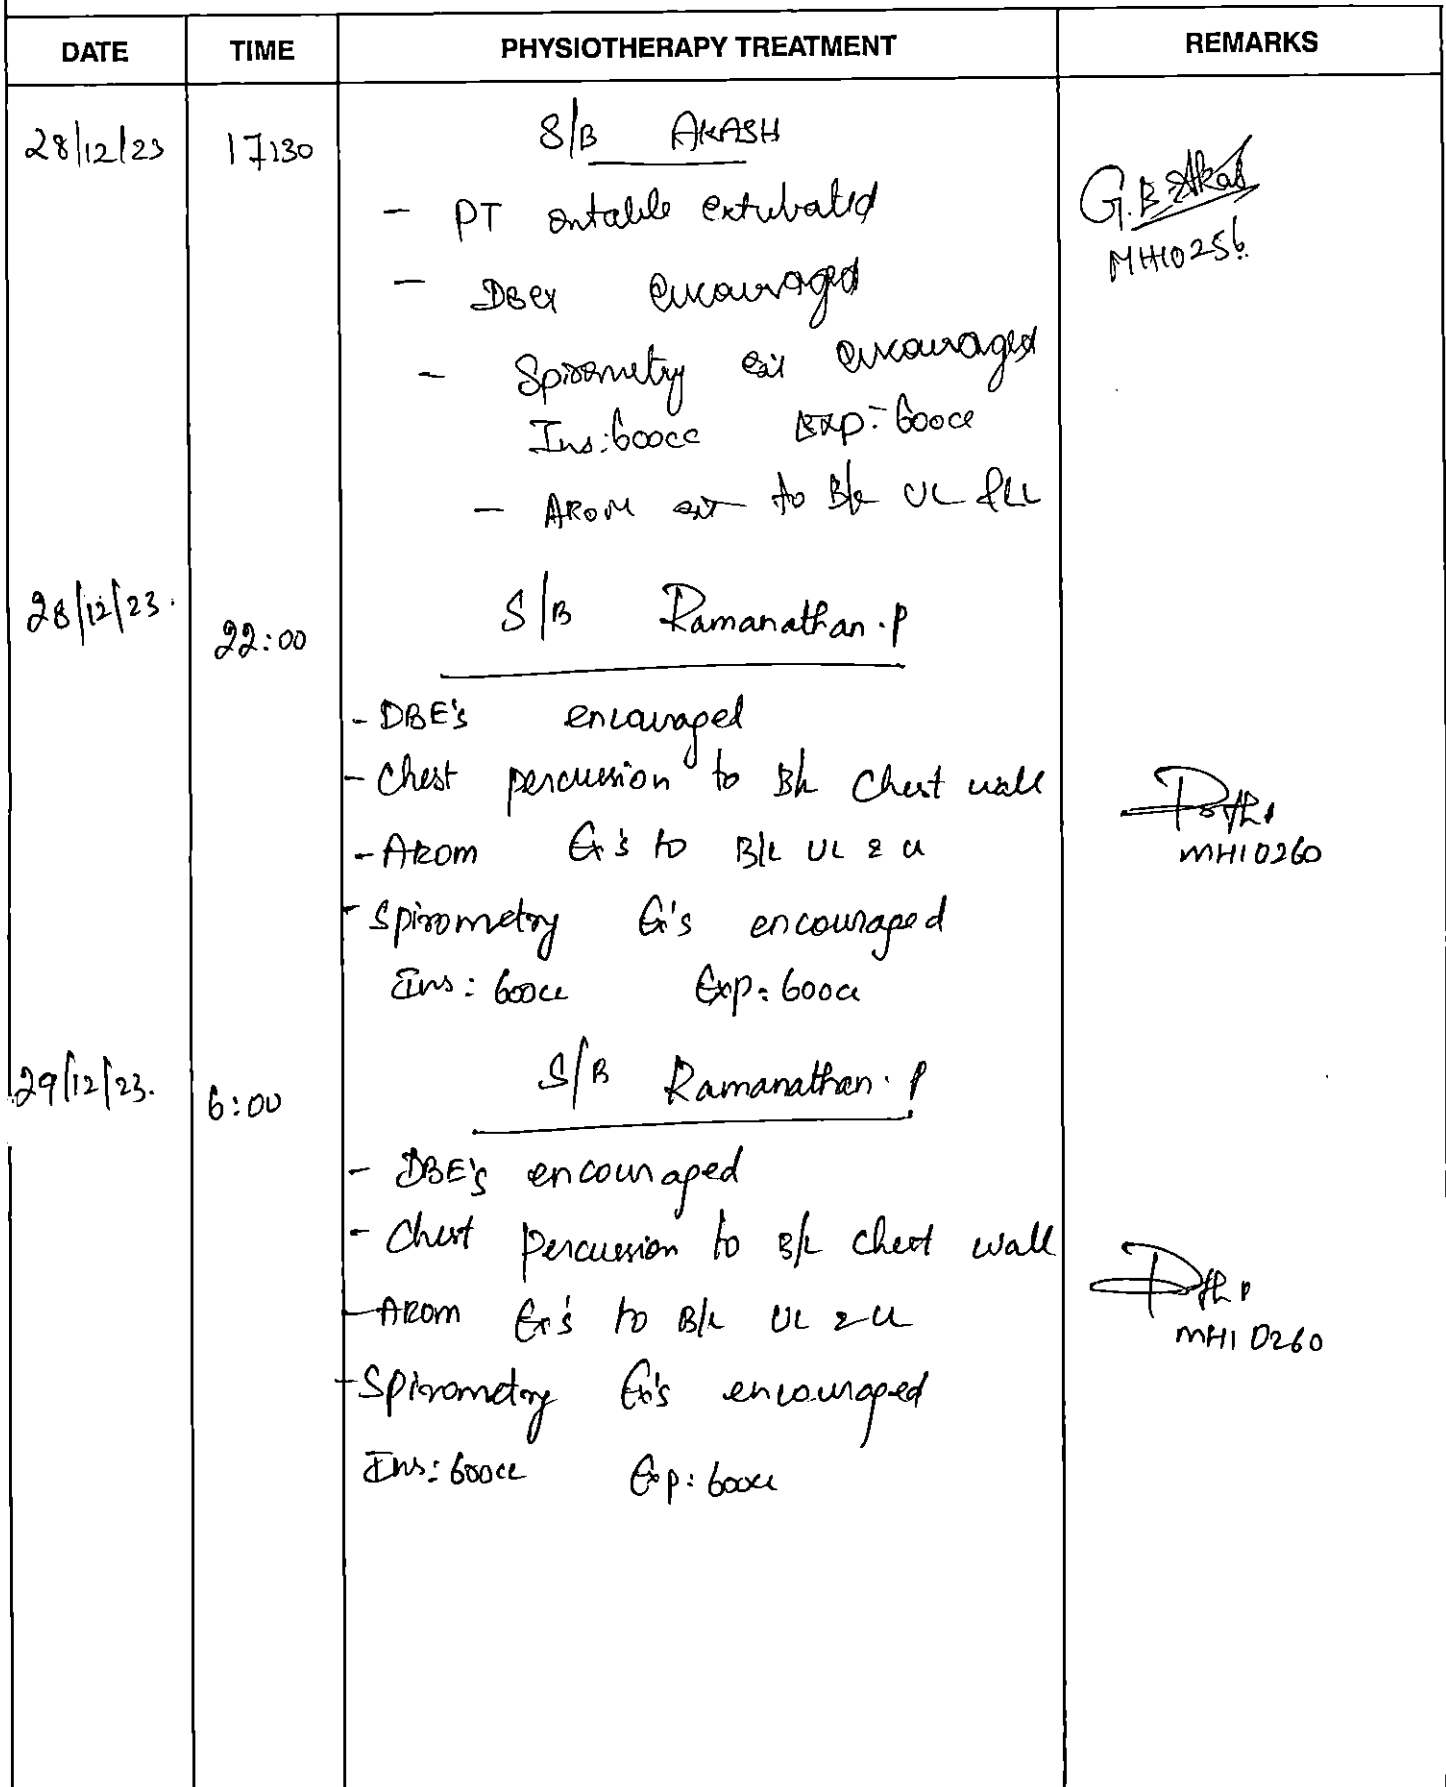 DATE TIME PHYSIOTHERAPY TREATMENT REMARKS
28/12/23 17:30 S/B AKASH
- PT ontable extubated
G.B. Akash
MH10256
- DBex encouraged
- Spirometry ex encouraged
Ins: 600cc Exp: 600cc
- AROM ex to B/L UL & LL
28/12/23. 22:00 S/B Ramanathan.P
- DBE's encouraged
- Chest percussion to B/L Chest wall
- AROM Ex's to B/L UL & LL
MH10260
- Spirometry Ex's encouraged
Ins: 600cc Exp: 600cc
29/12/23. 6:00 S/B Ramanathan.P
- DBE's encouraged
- Chest percussion to B/L chest wall
- AROM Ex's to B/L UL & LL
MH10260
- Spirometry Ex's encouraged
Ins: 600cc Exp: 600cc